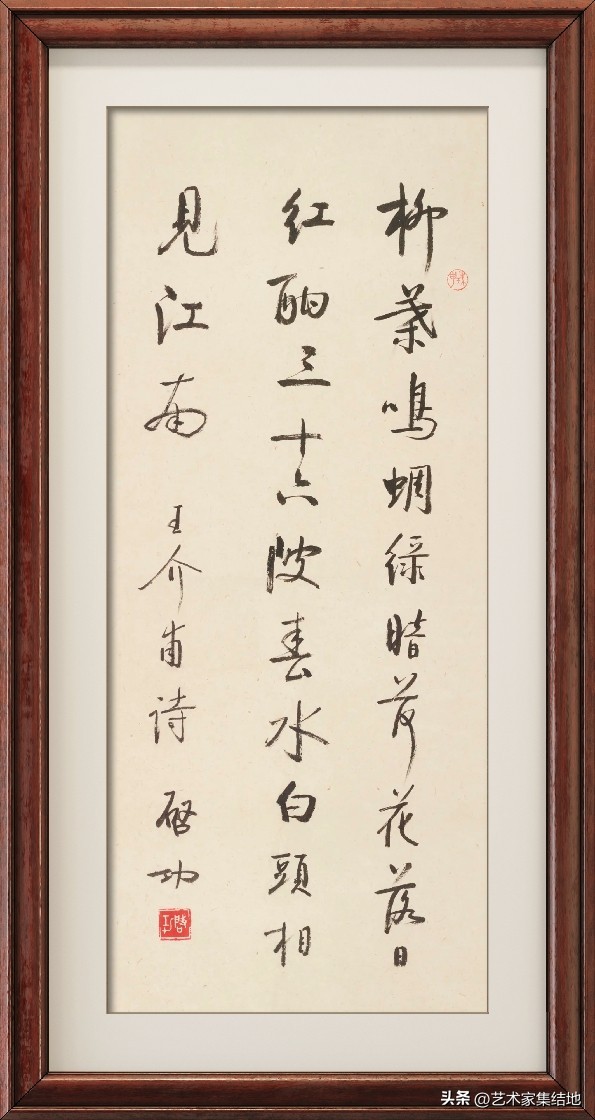 柳葉鳴蜩緑暗荷花落日
紅酣三十六陂春水白頭相
見江南 王介甫詩 啓功
啓功
头条 @艺术家集结地